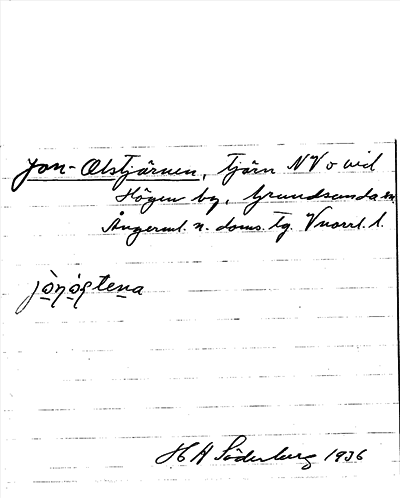 Jon-Olstjärnen, tjärn NV o vid
Högen by, Grundsunda sn.
Ångerml. n. doms. tg. Vnorrl. l.
H A Söderberg 1936